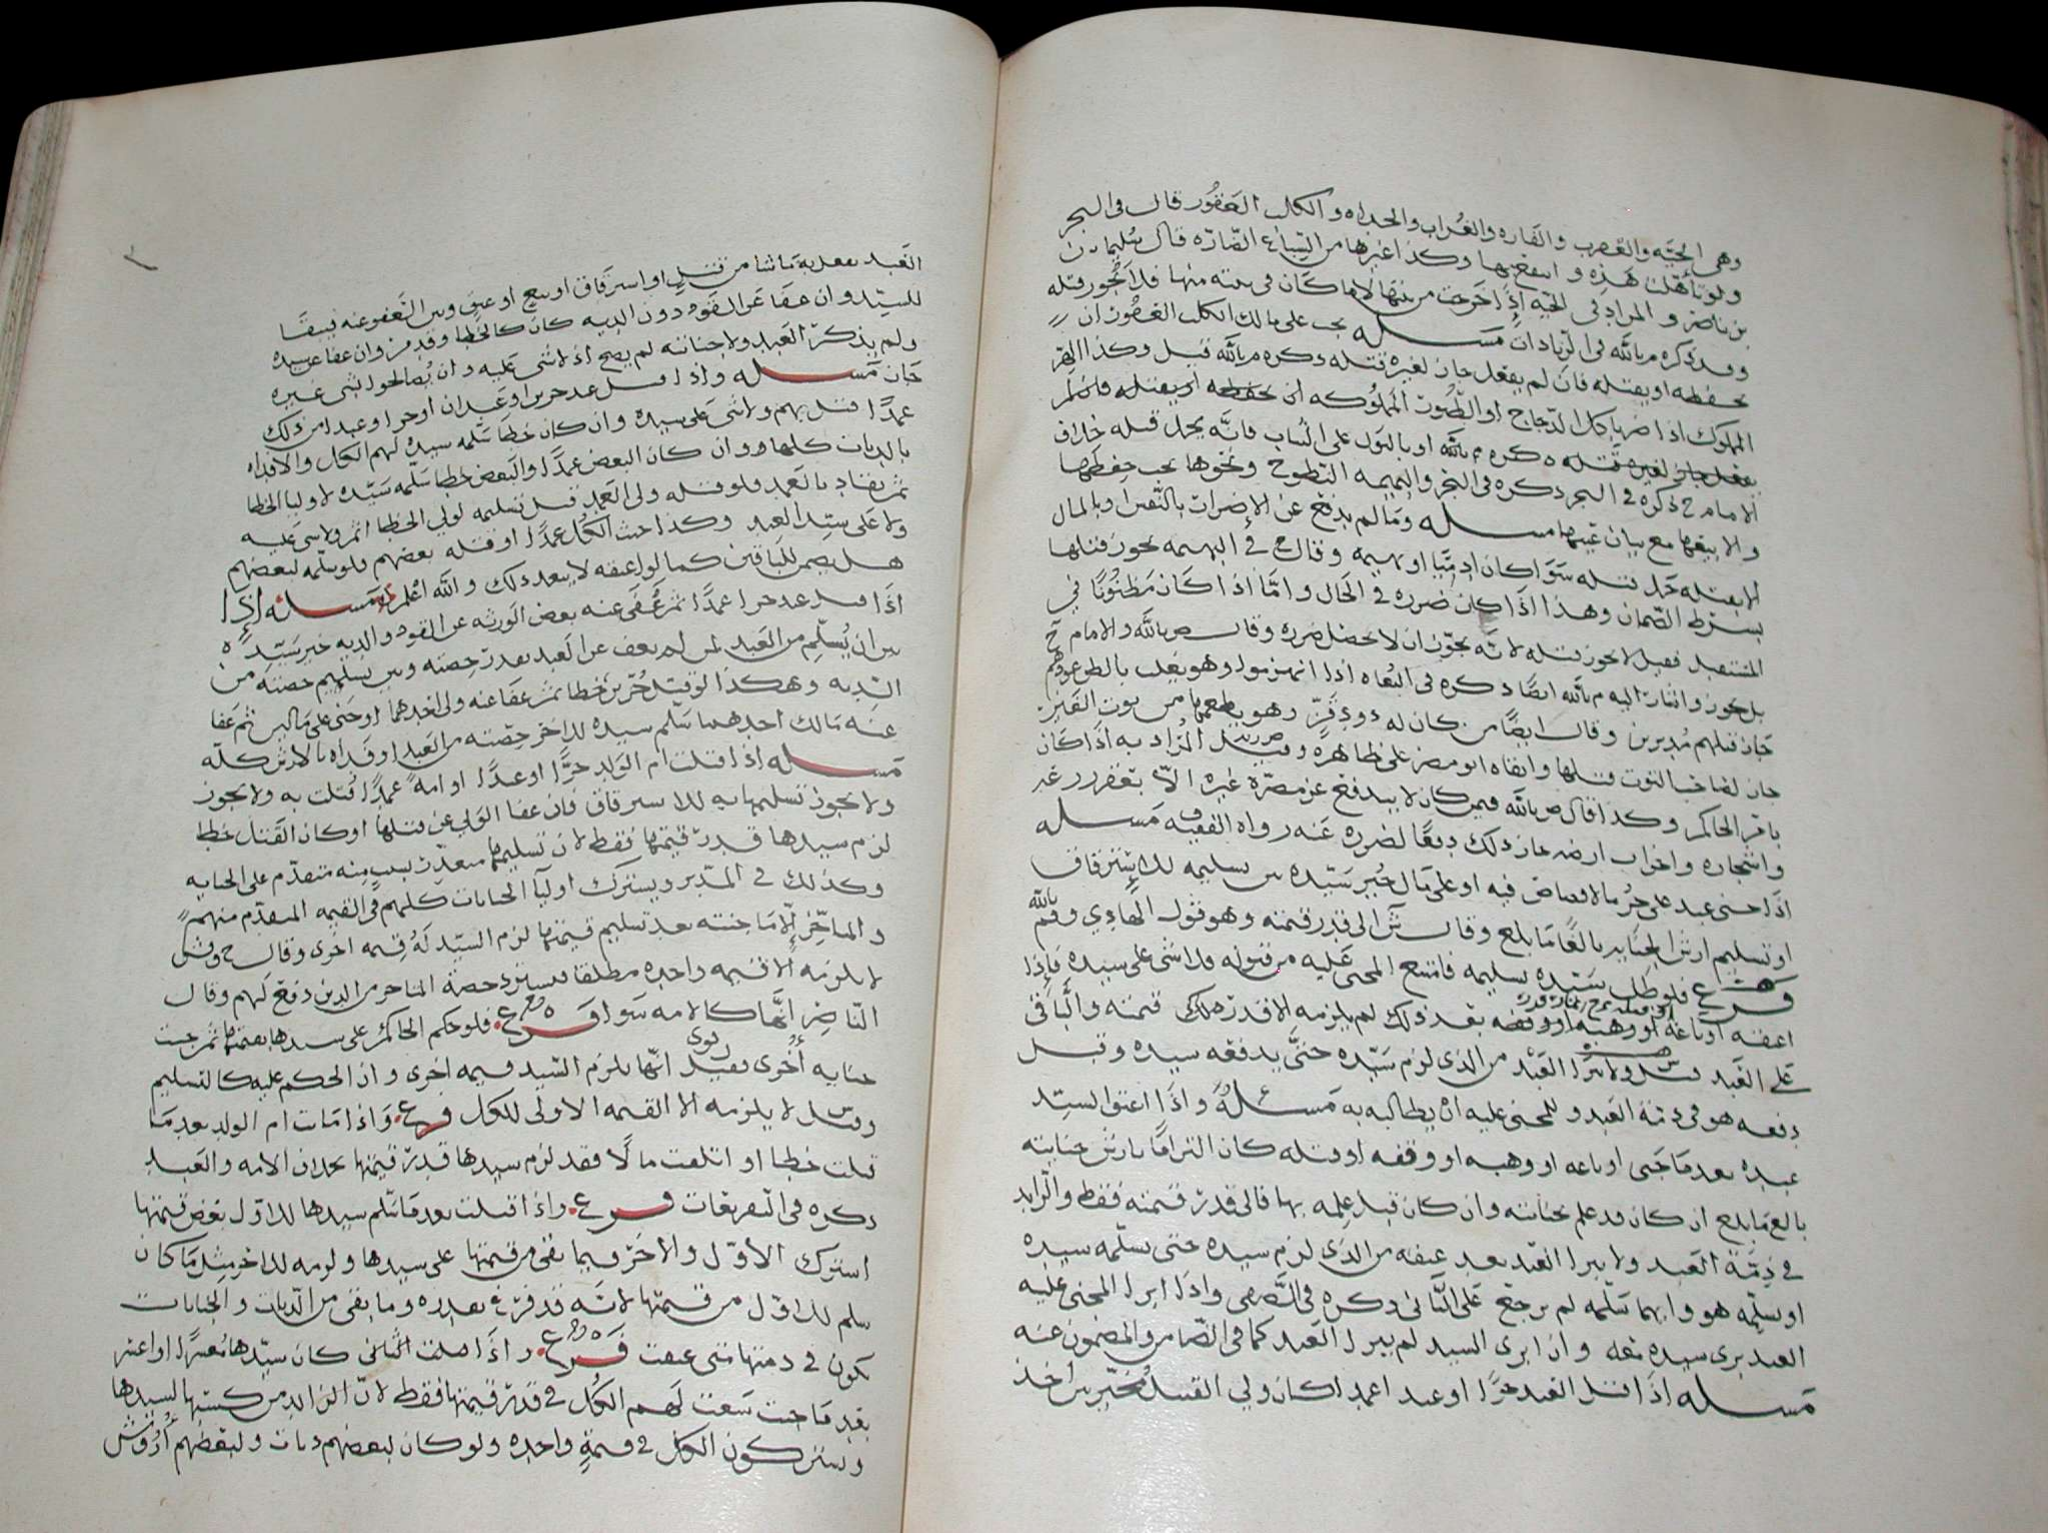 وهي الحيه والعقرب والفاره والغراب والحداه والكلب العقور قال في البحر
ولو تاهلت هذه وكذا غيرها من السباع الضاره قال سليمان
بن ناصر والمراد في الحيه إذا خرجت من بيتها لا ما كان في بيته منها فلا يجوز قتله
وقد ذكره م بالله في الزيادات مسله يجب على مالك الكلب العقور ان
يحفظه او يقتله فان لم يفعل جاز لغيره قتله ذكره م بالله قيل وكذا الهر
المملوك اذا ضر باكل الدجاج او الطيور المملوكه ان يحفظه او يقتله فان لم
يفعل جاز لغيره قتله ذكره م بالله او بالبول على الثياب فانه يحل قتله خلاف
الامام ح ذكره في البحر ذكره في البحر والبهيمه النطوح ونحوها يجب حفظها
والا بيعها مع بيان عيبها مسله وما لم يدفع عن الاضرار بالنفس او بالمال
الا بقتله حل قتله سوا كان ادميا او بهيمه وقال ح في البهيمه يجوز قتلها
بشرط الضمان وهذا اذا كان ضرره في الحال واما اذا كان مظنونا في
المستقبل فقيل لا يجوز قتله لانه يجوز ان لا يحصل ضرره وقال ص بالله والامام ح
بل يجوز واشار اليه م بالله ايضا ذكره في البغاه اذا انهزموا وهو يغلب بالظن عودهم
جاز قتلهم مدبرين وقال ايضا من كان له دود قز وهو يطعمها من توت الغير
جاز لصاحب التوت قتلها وابقاه ابو مضر على ظاهره وقيل المراد به اذا كان
باذن الحاكم وكذا قال ص بالله فيمن كان لا يندفع عن مضرة غيره الا بعقر زرعه
واشجاره واخراب ارضه جاز ذلك دفعا لضرره عنه رواه الفقيه ف مسله
اذا جنى عبد على حر ما لا قصاص فيه او على مال خير سيده بين تسليمه للاسترقاق
او تسليم ارش الجنايه بالغا ما بلغ وقال ش الى قدر قيمته وهو قول الهادي وقم بالله
فرع فلو طلب سيده تسليمه فامتنع المجني عليه من قبوله فلا شي على سيده فاذا
اعتقه او باعه او وهبه او وقفه بعد ذلك لم يلزمه الا قدر قيمته والباقي
على العبد قيل ولا يبرا العبد من الذي لزم سيده حتى يدفعه سيده وقبل
دفعه هو في ذمة العبد وللمجني عليه ان يطالبه به مسئلة واذا اعتق السيد
عبده بعد ما جنى او باعه او وهبه او وقفه او قتله كان التزاما بارش جنايته
بالغ ما بلغ ان كان قد علم بجنايته وان كان قبل علمه بها فالى قدر قيمته فقط والزايد
في ذمة العبد ولا يبرا العبد بعد عتقه من الذي لزم سيده حتى يسلمه سيده
او يسلمه هو وايهما سلمه لم يرجع على الثاني ذكره في واذا ابرا المجني عليه
العبد بري سيده معه وان ابرى السيد لم يبرا العبد كما في الضامن والمضمون عنه
مسله اذا قتل العبد حرا او عبدا عمدا كان ولي القتيل مخير بين اخذ
العبد يفعل به ما شا من قتل او استرقاق او بيع او عتق وبين العفو عنه فيبقا
للسيد وان عفا عن القود دون الديه كان كالخطا وقد مر وان عفا عن سيده
ولم يذكر العبد ولا جنايته لم يصح اذ لا شي عليه وان يصالحوا بشي غيره
جاز مسله واذا قتل عبد حرين او عبدان او حرا او عبدا من ذلك
عمدا قتل بهم ولا شي على سيده وان كان خطا سلمه سيده لهم الكل والا فداه
بالديات كلها وان كان البعض عمدا والبعض خطا سلمه سيده لاوليا الخطا
ثم يقتاد بالعمد فلو قتله ولي العمد قبل تسليمه لولي الخطا اثم ولا شي عليه
ولا على سيد العبد وكذا حيث الكل عمدا او قتله بعضهم فلو سلمه لبعضهم
هل يضمن للباقين كما لو اعتقه لا يبعد ذلك والله اعلم مسله إذا
اذا قتل عبد حرا عمدا ثم عفى عنه بعض الورثه عن القود والديه خير سيده
بين ان يسلم من العبد لمن لم يعف عن العبد بقدر حصته وبين تسليم حصته من
الديه وهكذا لو قتل حرين خطا ثم عفا عنه ولي احدهما او جنى على مالين ثم عفا
عنه مالك احدهما سلم سيده للاخر حصته من العبد او فداه بالارش كله
مسله اذا قتلت ام الولد حرا او عبدا او امة عمدا قتلت به ولا يجوز
ولا يجوز تسليمها به للاسترقاق فان عفا الولي عن قتلها او كان القتل خطا
لزم سيدها قدر قيمتها فقط لان تسليمها متعذر بسبب منه متقدم على الجنايه
وكذلك في المدبر ويشترك اوليا الجنايات كلهم في القيمه المتقدم منهم
والمتاخر إلا ما جنته بعد تسليم قيمتها لزم السيد له قيمه اخرى وقال ح وش
لا يلزمه الا قيمه واحده مطلقا فيسترد حصة المتاخر من الذين دفع لهم وقال
الناصر انها كالامه سوا فرع فلو حكم الحاكم على سيدها بقيمتها ثم جنت
جنايه أخرى فقيل انها يلزم السيد قيمه اخرى وان الحكم عليه كالتسليم
وقيل لا يلزمه الا القيمه الاولى للكل فرع واذا ماتت ام الولد بعد ما
قتلت خطا او اتلفت مالا فقد لزم سيدها قدر قيمتها بخلاف الامه والعبد
ذكره في التفريعات فرع واذا قتلت بعد ما سلم سيدها للاول بعض قيمتها
اشترك الأول والاخر فيما بقى من قيمتها على سيدها ولزمه للاخر مثل ما كان
سلم للاول من قيمتها لانه قد فرغ بعذره وما بقى من الديات والجنايات
يكون في ذمتها متى عتقت فرع واذا كان سيدها معسرا او اعسر
بعد ما جنت سعت لهم الكل في قدر قيمتها فقط لان الزايد من كسبها لسيدها
ويشتركون الكل في قيمة واحده ولو كان لبعضهم ديات ولبعضهم أروش